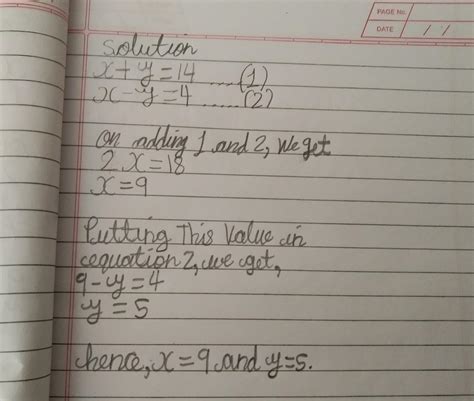 PAGE No.
DATE / /
Solution
x + y = 14 .....(1)
x - y = 4 ......(2)
on adding 1 and 2, We get
2x = 18
x = 9
Putting This Value in
equation 2, we get,
9 - y = 4
y = 5
hence, x = 9 and y = 5.